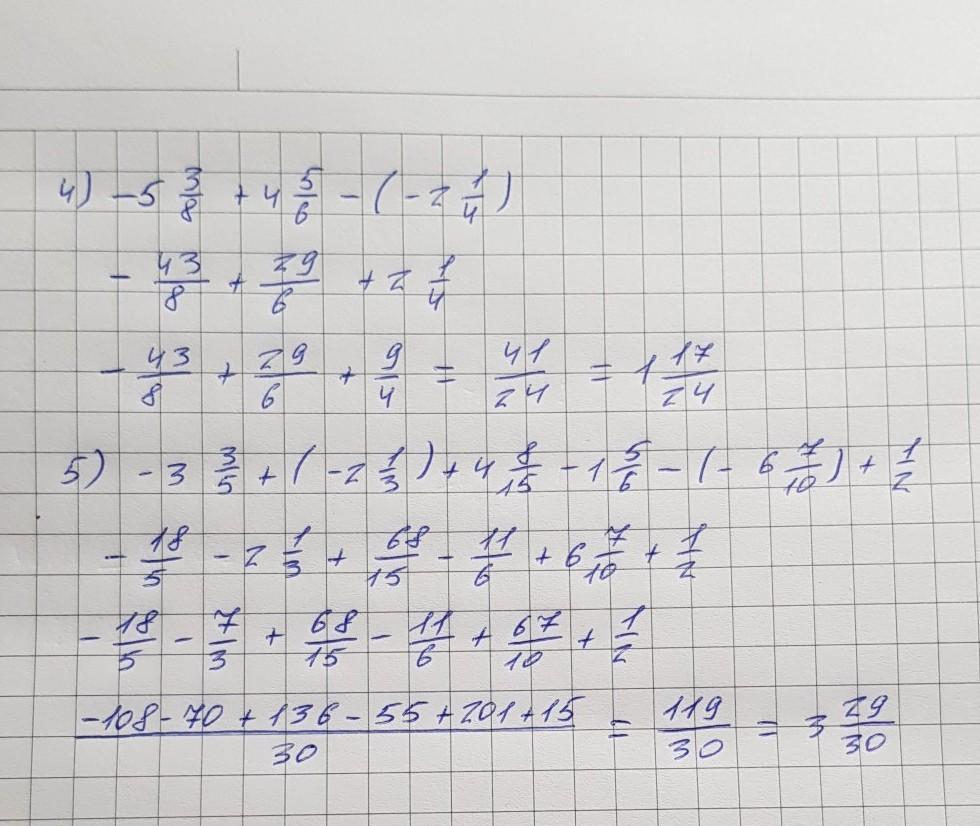 4) -5 3/8 + 4 5/6 - (-2 1/4)
- 43/8 + 29/6 + 2 1/4
- 43/8 + 29/6 + 9/4 = 41/24 = 1 17/24
5) -3 3/5 + (-2 1/3) + 4 8/15 - 1 5/6 - (- 6 7/10) + 1/2
- 18/5 - 2 1/3 + 68/15 - 11/6 + 6 7/10 + 1/2
- 18/5 - 7/3 + 68/15 - 11/6 + 67/10 + 1/2
(-108 - 70 + 136 - 55 + 201 + 15)/30 = 119/30 = 3 29/30